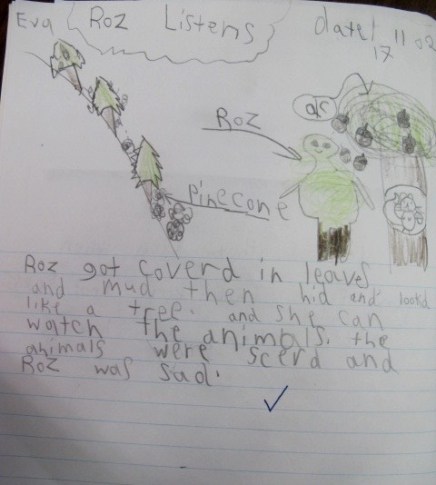 Eva Roz Listens date! 11 02
17
ac
Roz
Pinecone
Roz got coverd in leavs
and mud then hid and lookd
like a tree. and she can
watch the animals. the
animals were scerd and
Roz was sad.